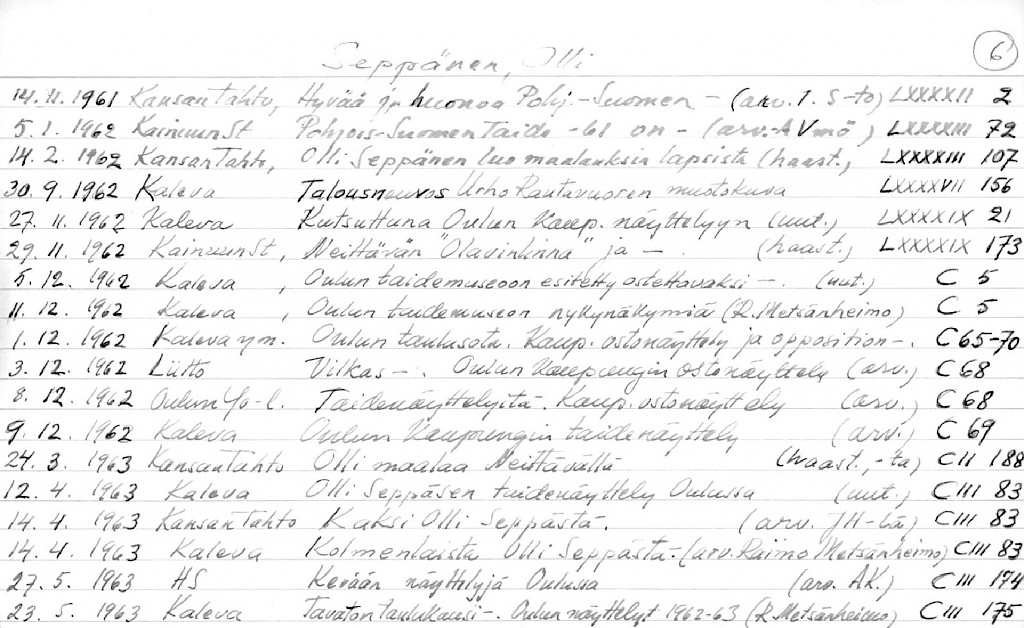 6
Seppänen, Olli
14.11.1961 Kansan Tahto, Hyvää ja huonoa Pohj.-Suomen - (arv. I. S-to) LXXXXII 2
5.1.1962 Kainuun St Pohjois-Suomen Taide -61 on - (arv. A Vmö) LXXXXIII 72
14.2.1962 Kansan Tahto, Olli Seppänen luo maalauksia lapsista (haast.) LXXXXIII 107
30.9.1962 Kaleva Talousneuvos Urho Rautavuoren muotokuva LXXXXVII 156
27.11.1962 Kaleva Kutsuttuna Oulun Kaup. näyttelyyn (uut.) LXXXXIX 21
29.11.1962 Kainuun St, Neittävän "Olavinlinna" ja - . (haast.) LXXXXIX 173
5.12.1962 Kaleva , Oulun taidemuseoon esitetty ostettavaksi -. (uut.) C 5
11.12.1962 Kaleva , Oulun taidemuseon nykynäkymiä (R. Metsänheimo) C 5
1.12.1962 Kaleva ym. Oulun taulusota. Kaup. ostonäyttely ja opposition -. C 65-70
3.12.1962 Liitto Vilkas -. Oulun Kaupungin ostonäyttely (arv.) C 68
8.12.1962 Oulun Yo-l. Taidenäyttelyitä. Kaup. ostonäyttely (arv.) C 68
9.12.1962 Kaleva Oulun Kaupungin taidenäyttely (arv.) C 69
24.3.1963 Kansan Tahto Olli maalaa Neittävällä (haast., -ta) CII 188
12.4.1963 Kaleva Olli Seppäsen taidenäyttely Oulussa (uut.) CIII 83
14.4.1963 Kansan Tahto Kaksi Olli Seppästä. (arv. JH-lä) CIII 83
14.4.1963 Kaleva Kolmenlaista Olli Seppästä. (arv. Raimo Metsänheimo) CIII 83
27.5.1963 HS Kevään näyttelyjä Oulussa (arv. AK.) CIII 174
23.5.1963 Kaleva Tavaton taulukausi -. Oulun näyttelyt 1962-63 (R. Metsänheimo) CIII 175